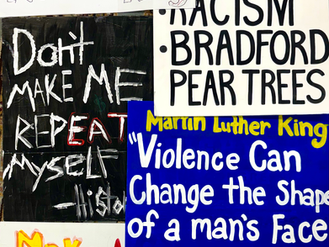 Don't
MAKE ME
REPEAT
MYSELF
RACISM
• BRADFORD
PEAR TREES
Martin Luther King
"Violence Can
Change the Shape
of a man's Face